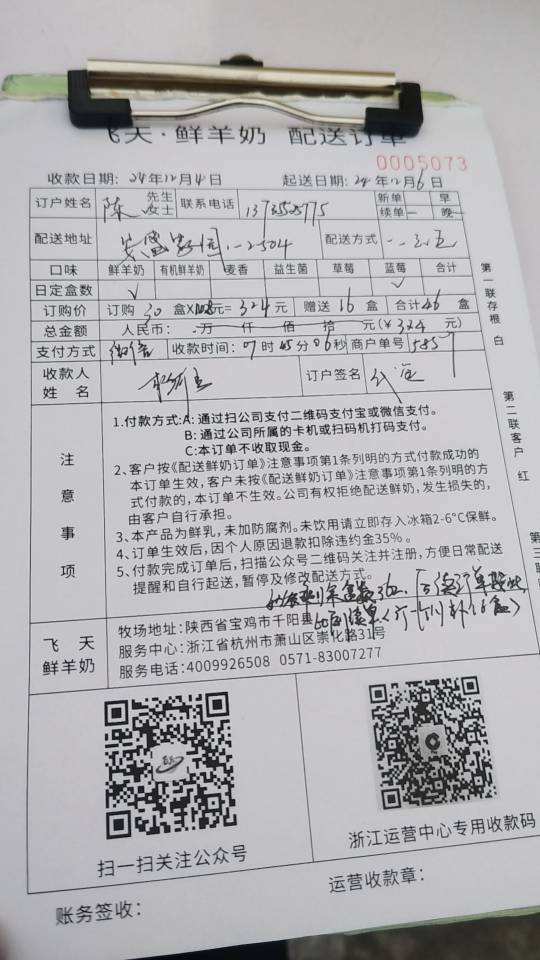 飞天·鲜羊奶 配送订单
0005073
收款日期: 24年12月4日 起送日期: 24年12月6日
订户姓名 陈 先生 女士 联系电话 新单 续单 早 晚
配送地址 1-2504 配送方式
口味 鲜羊奶 有机鲜羊奶 麦香 益生菌 草莓 蓝莓 合计
日定盒数 √ √
订购价 订购30盒×10.8元=324元 赠送16盒 合计46盒
总金额 人民币: 万 仟 佰 拾 元(¥324元)
支付方式 微信 收款时间: 07时45分06秒 商户单号 5857
收款人姓名 订户签名
注意事项
1.付款方式:A: 通过扫公司支付二维码支付宝或微信支付。
B: 通过公司所属的卡机或扫码机打码支付。
C:本订单不收取现金。
2、客户按《配送鲜奶订单》注意事项第1条列明的方式付款成功的
本订单生效, 客户未按《配送鲜奶订单》注意事项第1条列明的方
式付款的, 本订单不生效。公司有权拒绝配送鲜奶, 发生损失的,
由客户自行承担。
3、本产品为鲜乳, 未加防腐剂。未饮用请立即存入冰箱2-6°C保鲜。
4、订单生效后, 因个人原因退款扣除违约金35%。
5、付款完成订单后, 扫描公众号二维码关注并注册, 方便日常配送
提醒和自行起送, 暂停及修改配送方式。
飞天鲜羊奶
牧场地址: 陕西省宝鸡市千阳县
服务中心: 浙江省杭州市萧山区崇化路31号
服务电话: 4009926508 0571-83007277
第一联存根 白
第二联客户 红
第三联
扫一扫关注公众号
浙江运营中心专用收款码
账务签收:
运营收款章: